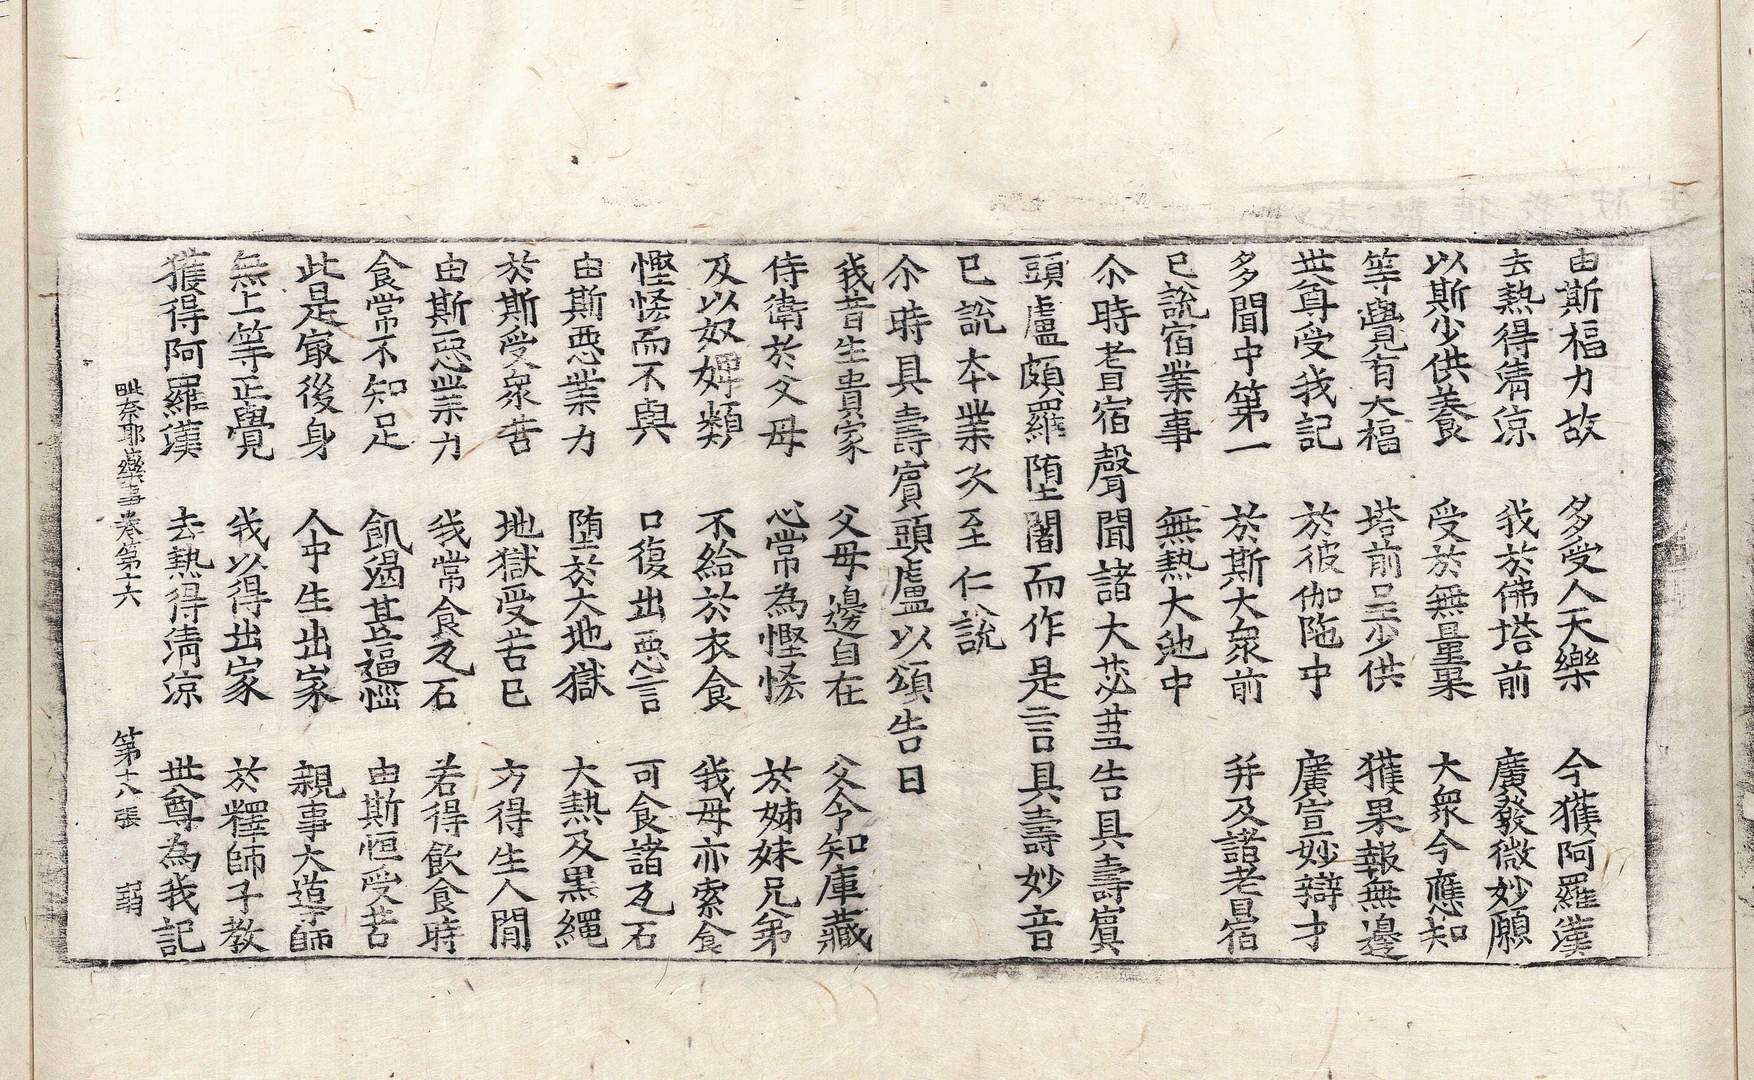 由斯福力故 多受人天樂 今獲阿羅漢
去熱得清涼 我於佛塔前 廣發微妙願
以斯少供養 受於無量果 大衆今應知
等覺有大福 塔前呈少供 獲果報無邊
世尊受我記 於彼伽陁中 廣宣妙辯才
多聞中第一 於斯大衆前 并及諸老宿
已說宿業事 無熱大池中
尒時耆宿聲聞諸大苾蒭告具壽賓
頭盧頗羅堕闍而作是言具壽妙音
已說本業次至仁說
尒時具壽賓頭盧以頌告曰
我昔生貴家 父母邊自在 父令知庫藏
侍衛於父母 心常為慳悋 於姊妹兄弟
及以奴婢類 不給於衣食 我母亦索食
慳悋而不與 口復出惡言 可食諸瓦石
由斯惡業力 堕於大地獄 大熱及黒繩
於斯受衆苦 地獄受苦已 方得生人間
由斯惡業力 我常食瓦石 若得飲食時
食常不知足 飢渴甚逼惱 由斯恒受苦
此是㝡後身 人中生出家 親事大導師
無上等正覺 我以得出家 於釋師子教
獲得阿羅漢 去熱得清涼 世尊為我記
毗奈耶藥事卷第六 第十八張